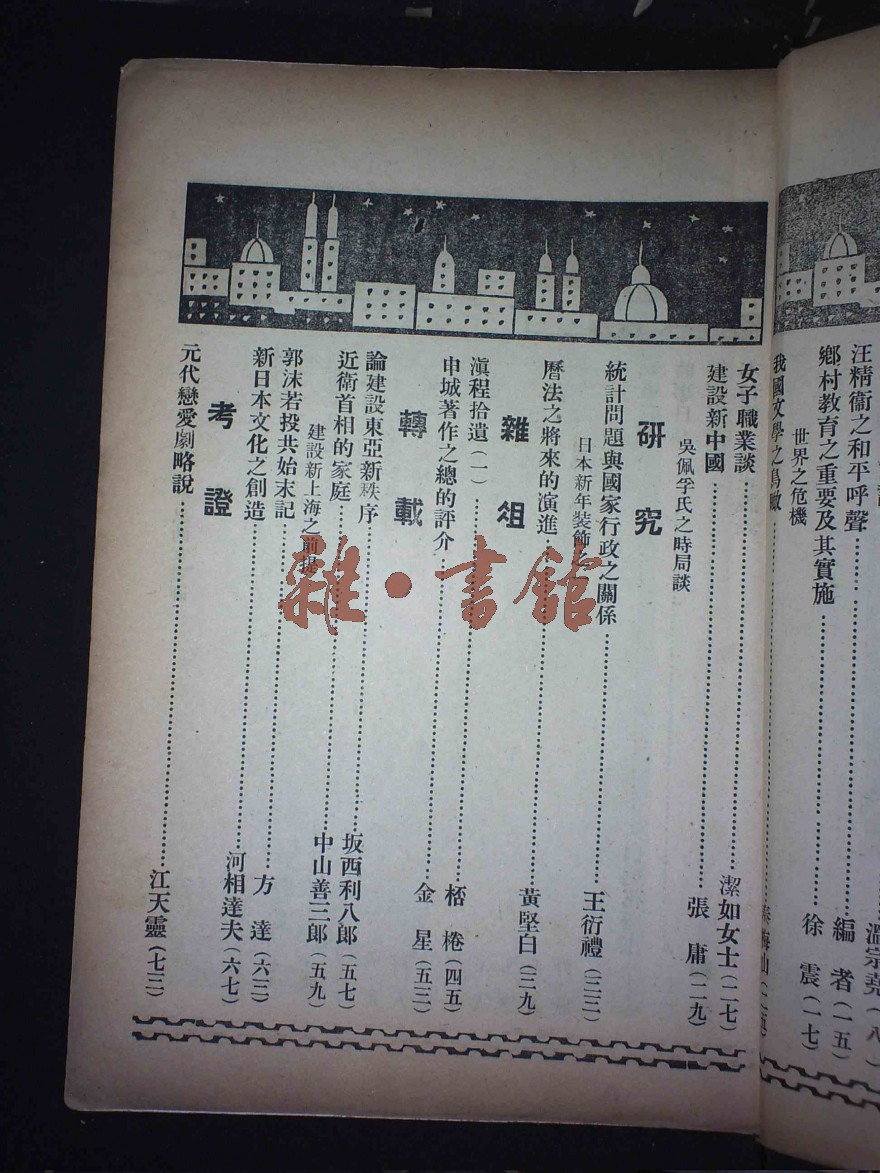 汪精衞之和平呼聲……編　者（一五）
鄉村教育之重要及其實施……徐　震（一七）
世界之危機
我國文學之鳥瞰
女子職業談……潔如女士（二七）
建設新中國……張　庸（二九）
吳佩孚氏之時局談
研究
統計問題與國家行政之關係……王衍禮（三三）
日本新年裝飾
曆法之將來的演進……黃堅白（三九）
雜俎
滇程拾遺（一）……栝　棬（四五）
申城著作之總的評介……金　星（五三）
轉載
論建設東亞新秩序……坂西利八郎（五七）
近衛首相的家庭……中山善三郎（五九）
建設新上海之前提
郭沫若投共始末記……方　達（六三）
新日本文化之創造……河相達夫（六七）
考證
元代戀愛劇略說……江天靈（七三）
雜·書館